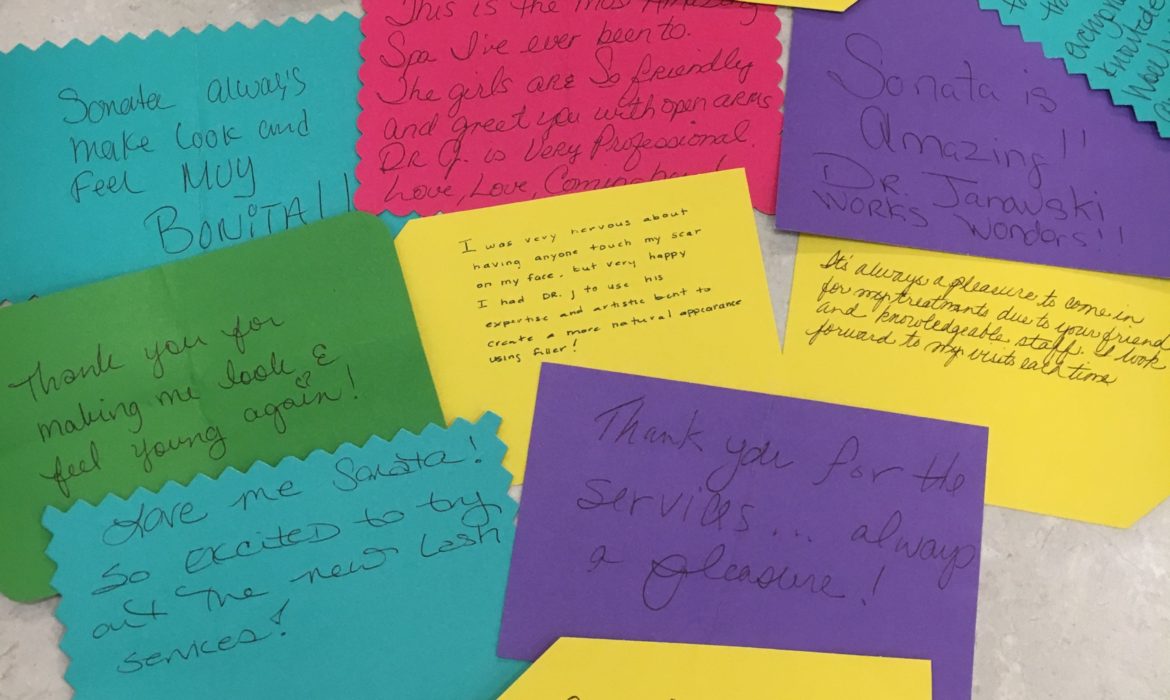 Sonata always
make look and
Feel MUY
BONiTA!!
This is the most Amazing
Spa I've ever been to.
The girls are So friendly
and greet you with open arms
DR J. is Very Professional.
Love, Love,
Sonata is
Amazing!!
DR. Janowski
WORKS Wonders!!
Thank you for
making me look &
feel young again!
I was very nervous about
having anyone touch my scar
on my face. but very happy
I had DR. J to use his
expertise and artistic bent to
create a more natural appearance
using filler!
It's always a pleasure to come in
for my treatments due to your friend
and knowledgeable staff. I look
forward to my visits each time
Love me Sonata!
So excited to try
out the new Lash
services!
Thank you for the
services... always
a pleasure!